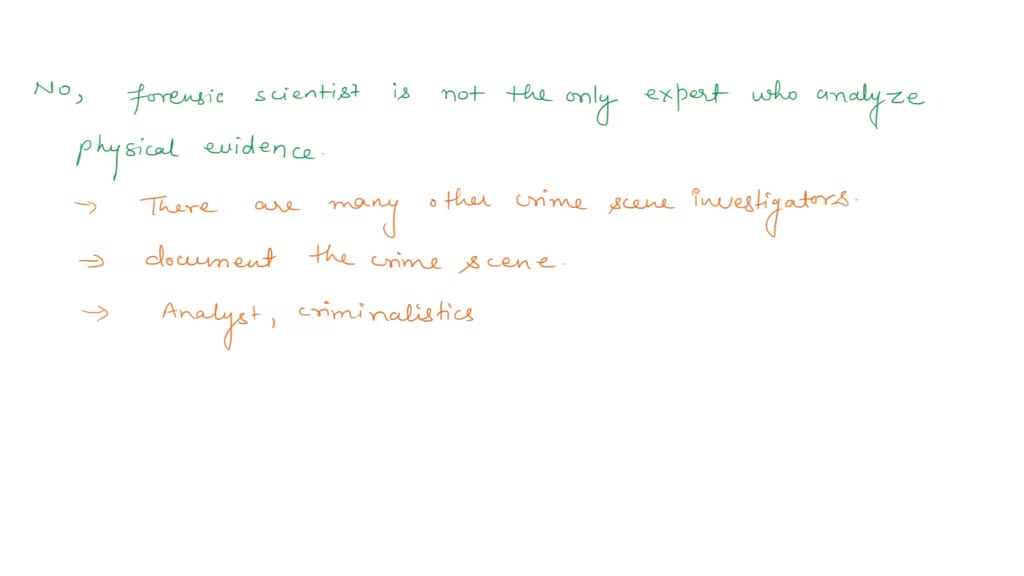 No, forensic scientist is not the only expert who analyze
physical evidence.
→ There are many other crime scene investigators.
→ document the crime scene.
→ Analyst, criminalistics